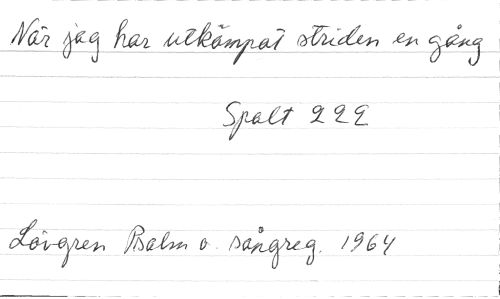 När jag har utkämpat striden en gång
Spalt 222
Lövgren Psalm o. sångreg. 1964